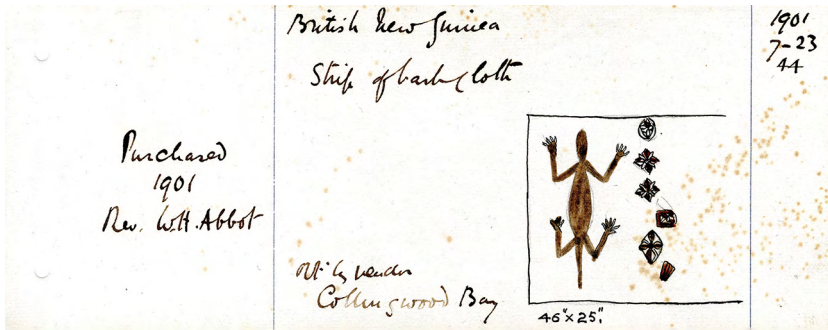 Purchased
1901
Rev. W.H. Abbot
British New Guinea
Strip of bark cloth
by vendor
Collingwood Bay
46" x 25".
1901
7-23
44